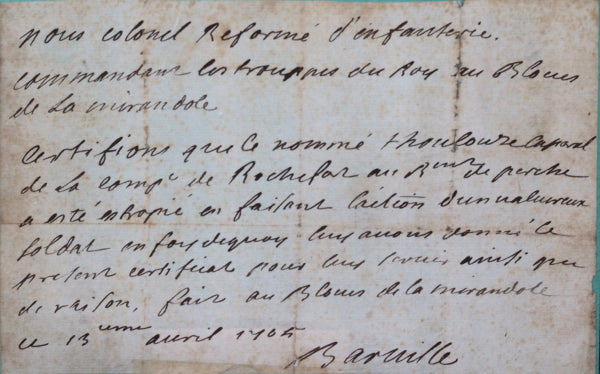 nous colonel Reformé d'infanterie.
commandant les trouppes du Roy au Blocus
de La mirandole
Certifions que le nommé thoulouze Caporal
de La comp.e de Rochefort au R.ment de perche
a esté estropié en faisant l'action d'un valureux
soldat en foy dequoy luy avons donné le
present certificat pour luy servir ainsi que
de raison. fait au Blocus de la mirandole
ce 13 eme avril 1705
Barville